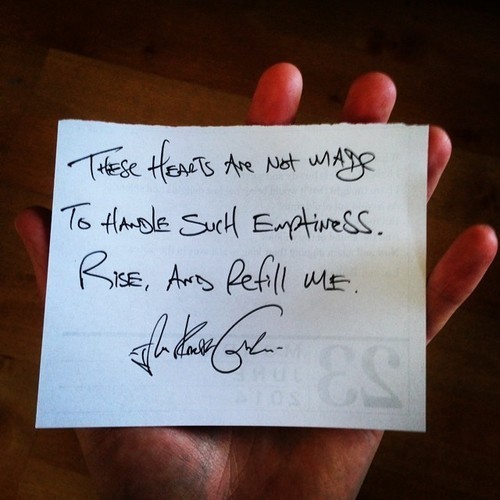 These Hearts Are Not Made
To Handle Such Emptiness.
Rise, And Refill Me.
23
JUNE
2014